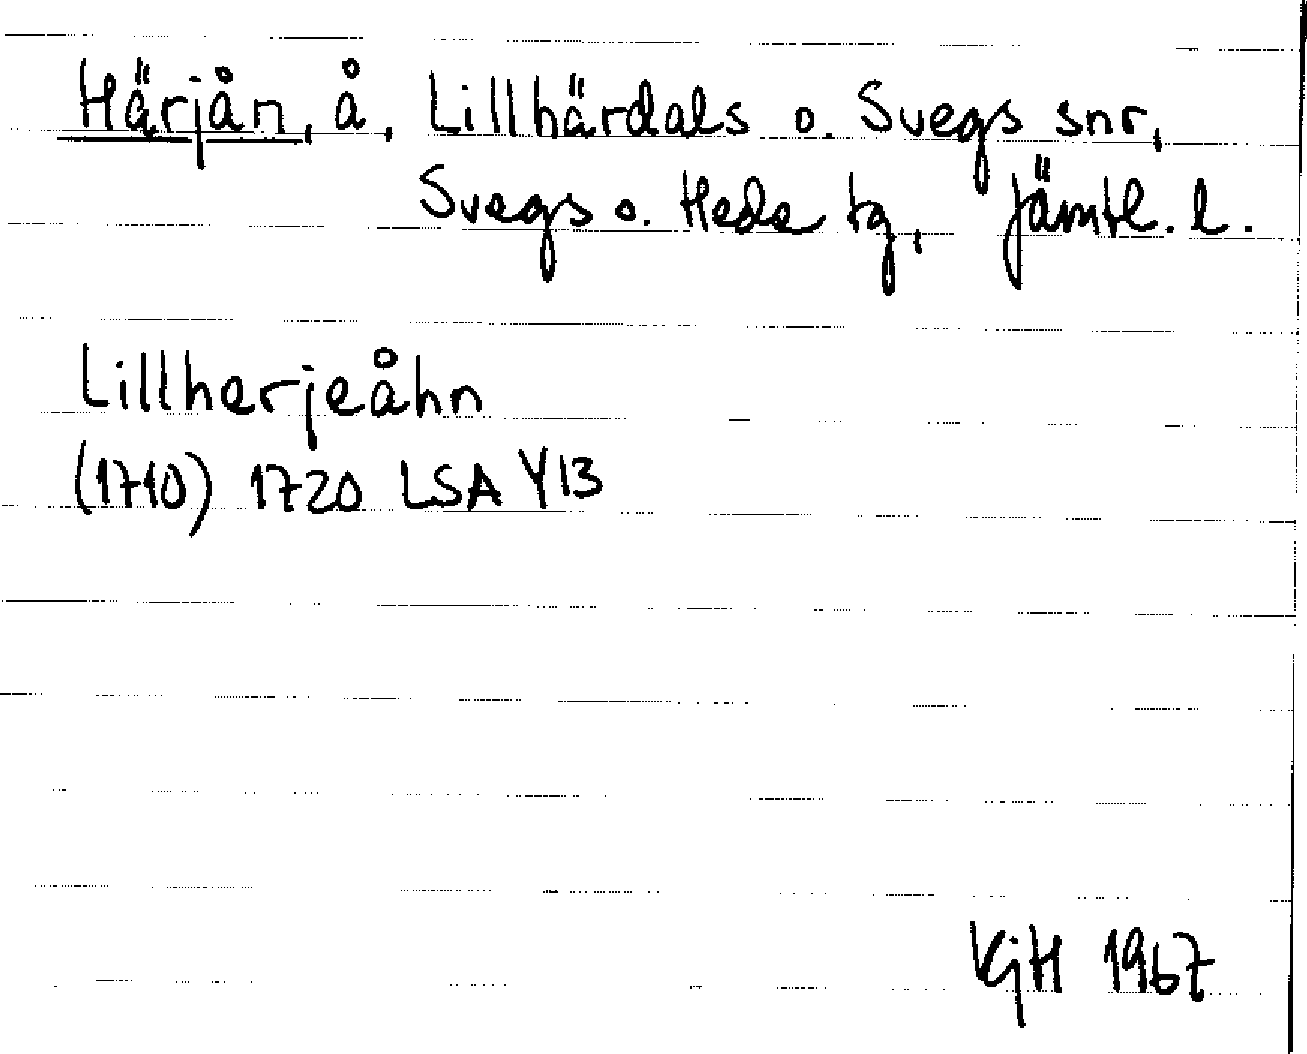 Härjån, å, Lillhärdals o. Svegs snr,
Svegs o. Hede tg, Jämtl. l.
Lillherjeåhn
(1710) 1720 LSA Y13
KjH 1967